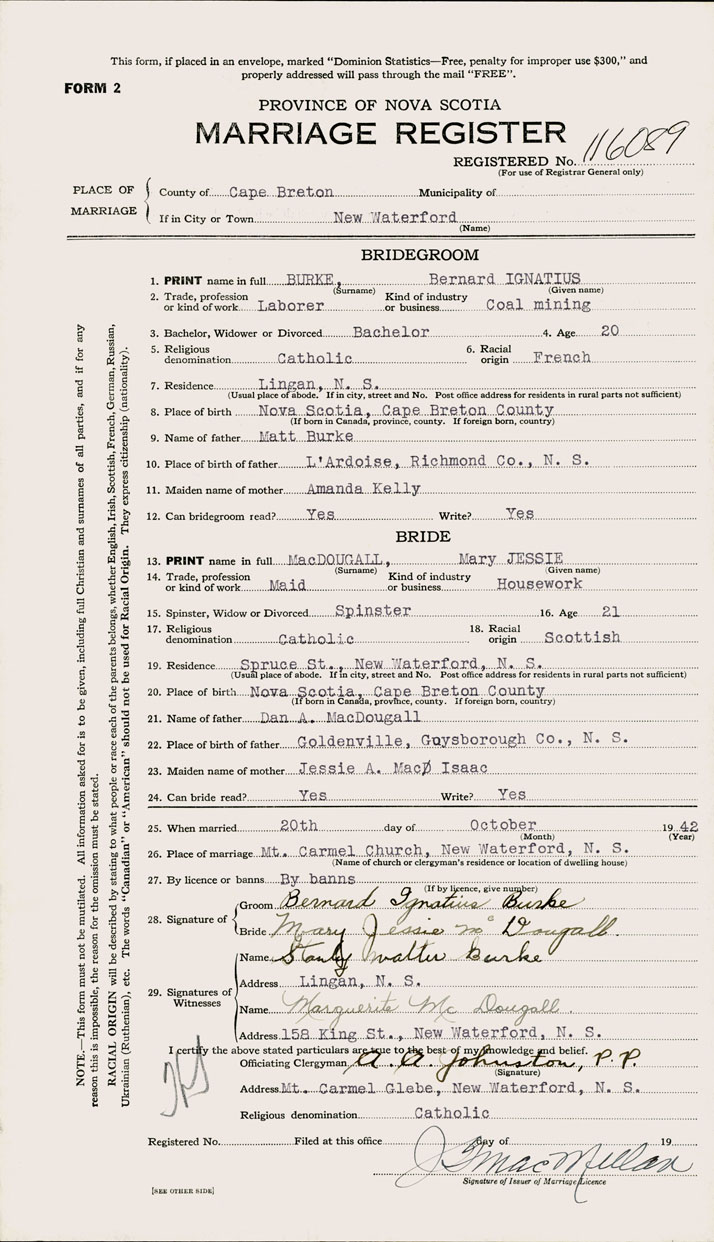 This form, if placed in an envelope, marked "Dominion Statistics—Free, penalty for improper use $300," and
properly addressed will pass through the mail "FREE".
FORM 2
PROVINCE OF NOVA SCOTIA
MARRIAGE REGISTER
REGISTERED No. 116089
(For use of Registrar General only)
PLACE OF MARRIAGE
County of Cape Breton Municipality of
If in City or Town New Waterford
(Name)
BRIDEGROOM
1. PRINT name in full BURKE, Bernard IGNATIUS
(Surname) (Given name)
2. Trade, profession or kind of work Laborer Kind of industry or business Coal mining
3. Bachelor, Widower or Divorced Bachelor 4. Age 20
5. Religious denomination Catholic 6. Racial origin French
7. Residence Lingan, N. S.
(Usual place of abode. If in city, street and No. Post office address for residents in rural parts not sufficient)
8. Place of birth Nova Scotia, Cape Breton County
(If born in Canada, province, county. If foreign born, country)
9. Name of father Matt Burke
10. Place of birth of father L'Ardoise, Richmond Co., N. S.
11. Maiden name of mother Amanda Kelly
12. Can bridegroom read? Yes Write? Yes
BRIDE
13. PRINT name in full MacDOUGALL, Mary JESSIE
(Surname) (Given name)
14. Trade, profession or kind of work Maid Kind of industry or business Housework
15. Spinster, Widow or Divorced Spinster 16. Age 21
17. Religious denomination Catholic 18. Racial origin Scottish
19. Residence Spruce St., New Waterford, N. S.
(Usual place of abode. If in city, street and No. Post office address for residents in rural parts not sufficient)
20. Place of birth Nova Scotia, Cape Breton County
(If born in Canada, province, county. If foreign born, country)
21. Name of father Dan A. MacDougall
22. Place of birth of father Goldenville, Guysborough Co., N. S.
23. Maiden name of mother Jessie A. Mac Isaac
24. Can bride read? Yes Write? Yes
25. When married 20th day of October 1942
(Month) (Year)
26. Place of marriage Mt. Carmel Church, New Waterford, N. S.
(Name of church or clergyman's residence or location of dwelling house)
27. By licence or banns By banns
(If by licence, give number)
28. Signature of
Groom Bernard Ignatius Burke
Bride Mary Jessie Mc Dougall.
29. Signatures of Witnesses
Name Stanley Walter Burke
Address Lingan, N. S.
Name Marguerite Mc Dougall.
Address 158 King St., New Waterford, N. S.
I certify the above stated particulars are true to the best of my knowledge and belief.
Officiating Clergyman A. A. Johnston, P.P.
(Signature)
Address Mt. Carmel Glebe, New Waterford, N. S.
Religious denomination Catholic
Registered No. Filed at this office day of 19
J. G. MacMillan
Signature of Issuer of Marriage Licence
[SEE OTHER SIDE]
NOTE.—This form must not be mutilated. All information asked for is to be given, including full Christian and surnames of all parties, and if for any
reason this is impossible, the reason for the omission must be stated.
RACIAL ORIGIN will be described by stating to what people or race each of the parents belongs, whether English, Irish, Scottish, French, German, Russian,
Ukrainian (Ruthenian), etc. The words "Canadian" or "American" should not be used for Racial Origin. They express citizenship (nationality).